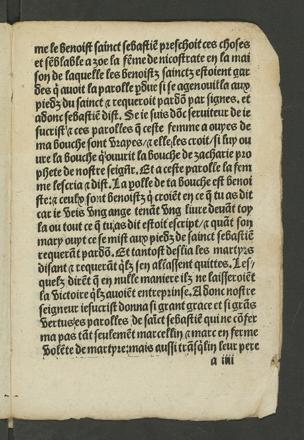 me le benoist sainct sebastiē preschoit ces choses
et sēblable a zoe la fēme de nicostrate en la mai
son de laquelle les benoistz sainctz estoient gar
des q̄ auoit la parolle pdue si se agenouil la aux
piedz du sainct ⁊ requeroit pardō par signes. et
adonc sebastiē dist. Se ie suis dōc seruiteur de ie
sucrist ⁊ ces parolles q̄ ceste femme a ouyes de
ma bouche sont vrayes ⁊ elle les croit/ si luy ou
ure la bouche q̄ ouurit la bouche de zacharie pro
phete de nostre seigr̄. Et a ceste parolle la fem
me lescria ⁊ dist. La polle de ta bouche est benoi
ste: ⁊ ceulx sont benoistz q̄ croiēt en ce q̄ tu as dit
car ie veis vng ange tenāt vng liure deuāt toy
la ou tout ce q̄ tu as dit estoit escript/ ⁊ quāt son
mary ouyt ce se mist aux piedz de sainct sebastiē
requerāt pardō. Et tantost deslia les martyrs
disant ⁊ requerāt q̄lz sen allassent quittes. Les/
quelz dirēt q̄ en nulle maniere ilz ne laisseroiēt
la victoire q̄lz auoiēt entreprinse. Adonc nostre
seigneur iesucrist donna si grant grace et si grās
vertus es parolles de saīct sebastiē qui ne cōfer
ma pas tāt seulemēt marcellin ⁊ marc en ferme
volēte de martyre: mais aussi trāsq̄lin leur pere
a iiii